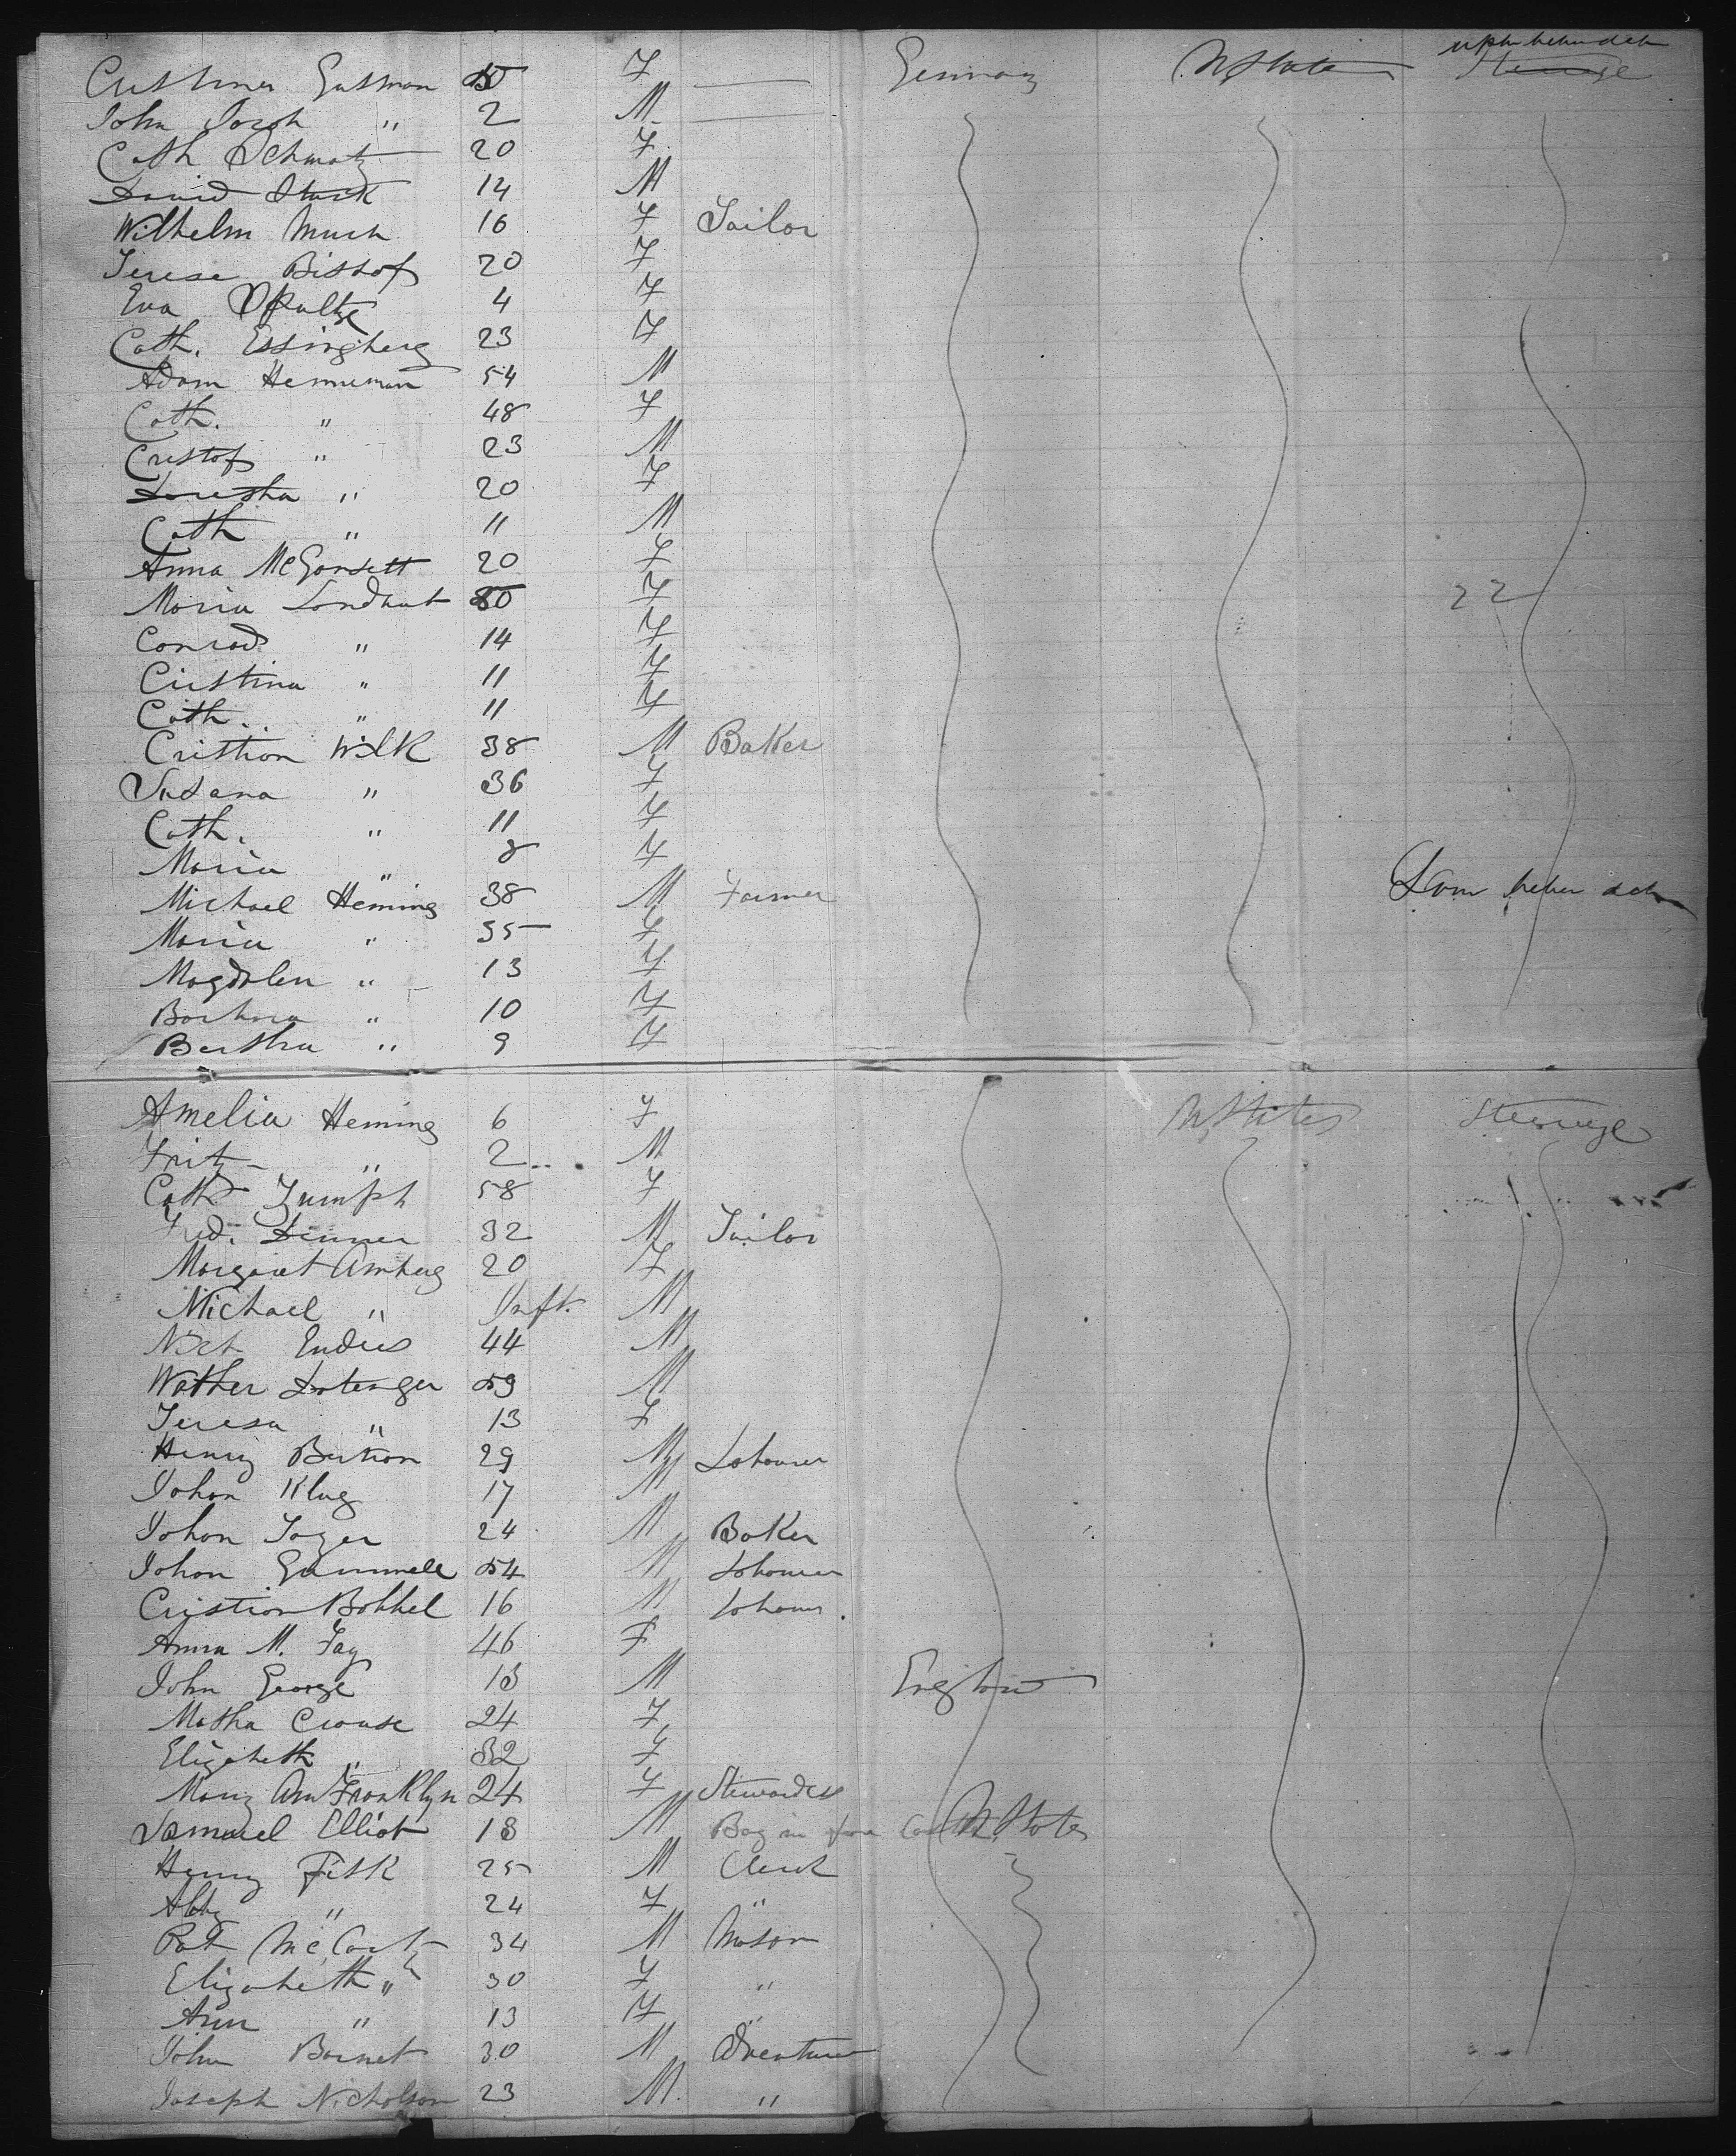 Cristiner Gutman 50 F — Germany U States upper between deck Steerage
John Jacob " 2 M —
Cath Schmatz 20 F
David Stark 14 M
Wilhelm Much 16 F Tailor
Terese Bishof 20 F
Eva 4 F
Cath. Essingberg 23 F
Adam Henneman 54 M
Cath. " 48 F
Cristof " 23 M
Doretha " 20 F
Cath " 11 M
Anna 20 F
Maria Landhut 50 F 22
Conrad " 14 F
Cristina " 11 F
Cath. " 11 F
Cristian Wilk 38 M Baker
Susana " 36 F
Cath. " 11 F
Maria " 8 F
Michael Heming 38 M Farmer Low between deck
Maria " 35 F
Magdalen " 13 F
Barbara " 10 F
Bertha " 9 F
Amelia Heming 6 F U States Steerage
Fritz " 2 M
Cath Zumph 58 F
Fred. Denner 32 M Tailor
Margaret Amberg 20 F
Michael " Inft. M
Endres 44 M
59 M
Teresa " 13 F
Henry 29 M Labourer
Johan Klug 17 M
Johan 24 M Baker
Johan Gummell 54 M Labourer
Cristian Bohhel 16 M Labourer
Anna M. Fay 46 F
John George 18 M England
Matha Crouse 24 F
Elizabeth " 32 F
Mary Ann Franklyn 24 F Stewardess
Samuel Elliot 18 M U States
Henry Fisk 25 M Clerk
Abby " 24 F "
Pat McCarty 34 M Mason
Elizabeth " 30 F "
Ann " 13 F "
John Barnet 30 M
Joseph Nicholson 23 M "